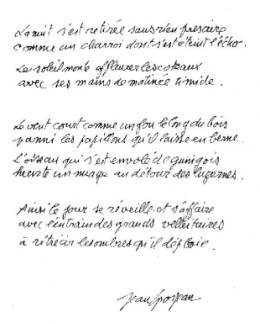 La nuit s'est retirée sans rien presaire
comme un charroi dont s'est éteint l'écho.
Le soleil monte affleurer les coteaux
avec ses mains de matinée timide.
Le vent court comme un fou le long du bois
parmi les papillons qu'il laisse en berne.
L'oiseau qui s'est envolé de guingois
heurte un nuage au détour des luzernes.
Ainsi le jour se réveille et s'affaire
avec l'entrain des grands velléitaires
à rétrécir les ombres qu'il déploie.
Jean Grosjean